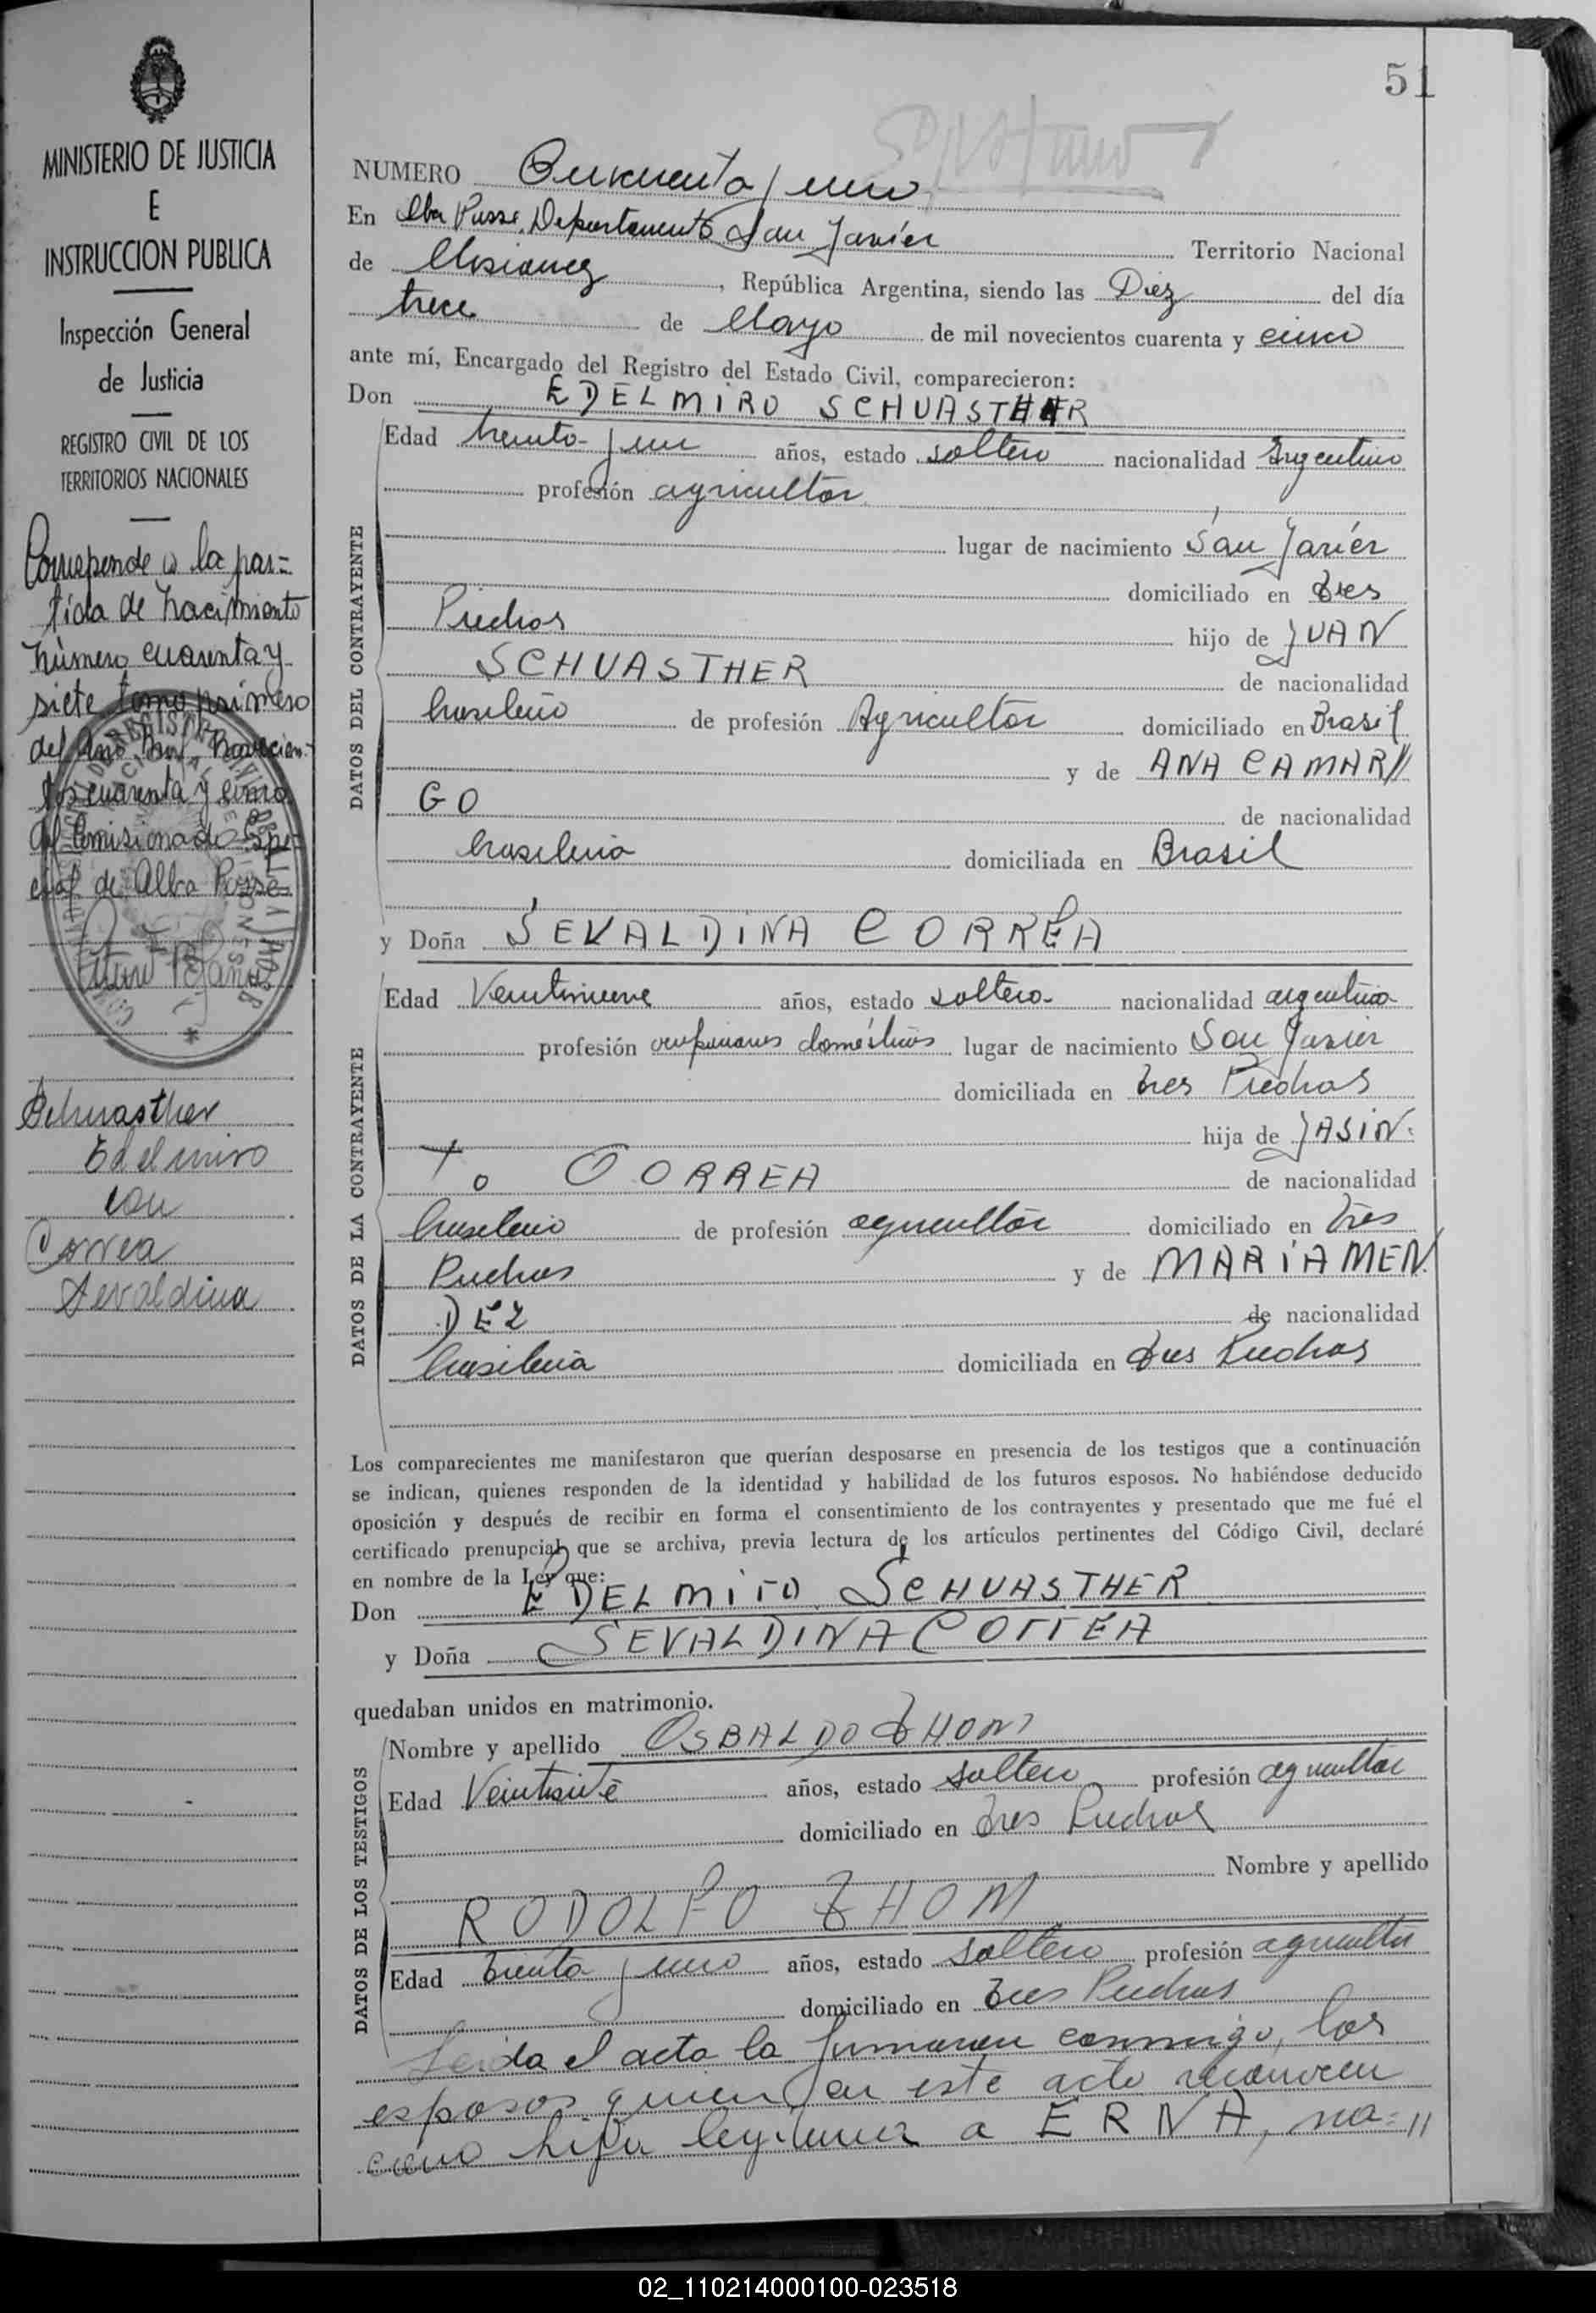 51
MINISTERIO DE JUSTICIA
E
INSTRUCCION PUBLICA
Inspección General
de Justicia
REGISTRO CIVIL DE LOS
TERRITORIOS NACIONALES
Corresponde a la par=
tida de nacimiento
número cuarenta y
siete tomo primero
del Año Mil Novecien-
tos cuarenta y cinco
del Comisionado Espe-
cial de Alba Posse
Schwasther
Edelmiro
con
Correa
Sevaldina
NUMERO Cincuenta y uno
En Alba Posse, Departamento San Javier Territorio Nacional
de Misiones, República Argentina, siendo las Diez del día
trece de Mayo de mil novecientos cuarenta y cinco
ante mí, Encargado del Registro del Estado Civil, comparecieron:
Don EDELMIRO SCHUASTHER
DATOS DEL CONTRAYENTE
Edad treinta y un años, estado soltero nacionalidad Argentino
profesión agricultor
lugar de nacimiento San Javier
domiciliado en Tres
Piedras hijo de JUAN
SCHUASTHER de nacionalidad
brasileño de profesión Agricultor domiciliado en Brasil
y de ANA CAMAR//
GO de nacionalidad
brasileña domiciliada en Brasil
y Doña SEVALDINA CORRÊA
DATOS DE LA CONTRAYENTE
Edad Veintinueve años, estado soltera nacionalidad argentina
profesión ocupaciones domésticas lugar de nacimiento San Javier
domiciliada en Tres Piedras
hija de JASIN-
TO CORREA de nacionalidad
brasileño de profesión agricultor domiciliado en Tres
Piedras y de MARIA MEN
DEZ de nacionalidad
brasileña domiciliada en Tres Piedras
Los comparecientes me manifestaron que querían desposarse en presencia de los testigos que a continuación
se indican, quienes responden de la identidad y habilidad de los futuros esposos. No habiéndose deducido
oposición y después de recibir en forma el consentimiento de los contrayentes y presentado que me fué el
certificado prenupcial, que se archiva, previa lectura de los artículos pertinentes del Código Civil, declaré
en nombre de la Ley que:
Don EDELMIrO SCHUASTHER
y Doña SEVALDINA COrrEA
quedaban unidos en matrimonio.
DATOS DE LOS TESTIGOS
Nombre y apellido OSBALDO THOM
Edad Veintisiete años, estado soltero profesión agricultor
domiciliado en Tres Piedras
Nombre y apellido
RODOLFO THOM
Edad treinta y uno años, estado soltero profesión agricultor
domiciliado en Tres Piedras
Leida el acta la firmaron conmigo, los
esposos quien en este acto reconocen
como hija legitima a ERNA, na=//
02_110214000100-023518